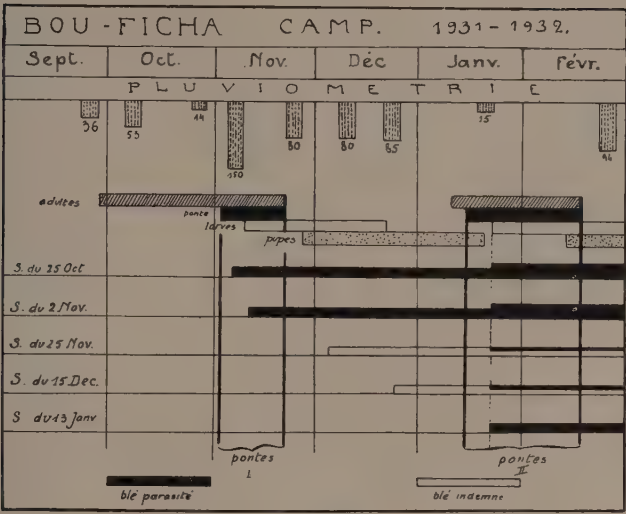 BOU-FICHA CAMP. 1931-1932.
Sept. Oct. Nov. Déc Janv. Févr.
PLUVIOMETRIE
36 53 14 150 80 80 85 15 94
adultes
ponte
larves
pupes
S. du 25 Oct
S. du 2 Nov.
S. du 25 Nov.
S. du 15 Dec.
S du 13 Janv
pontes I
pontes II
blé parasité
blé indemne